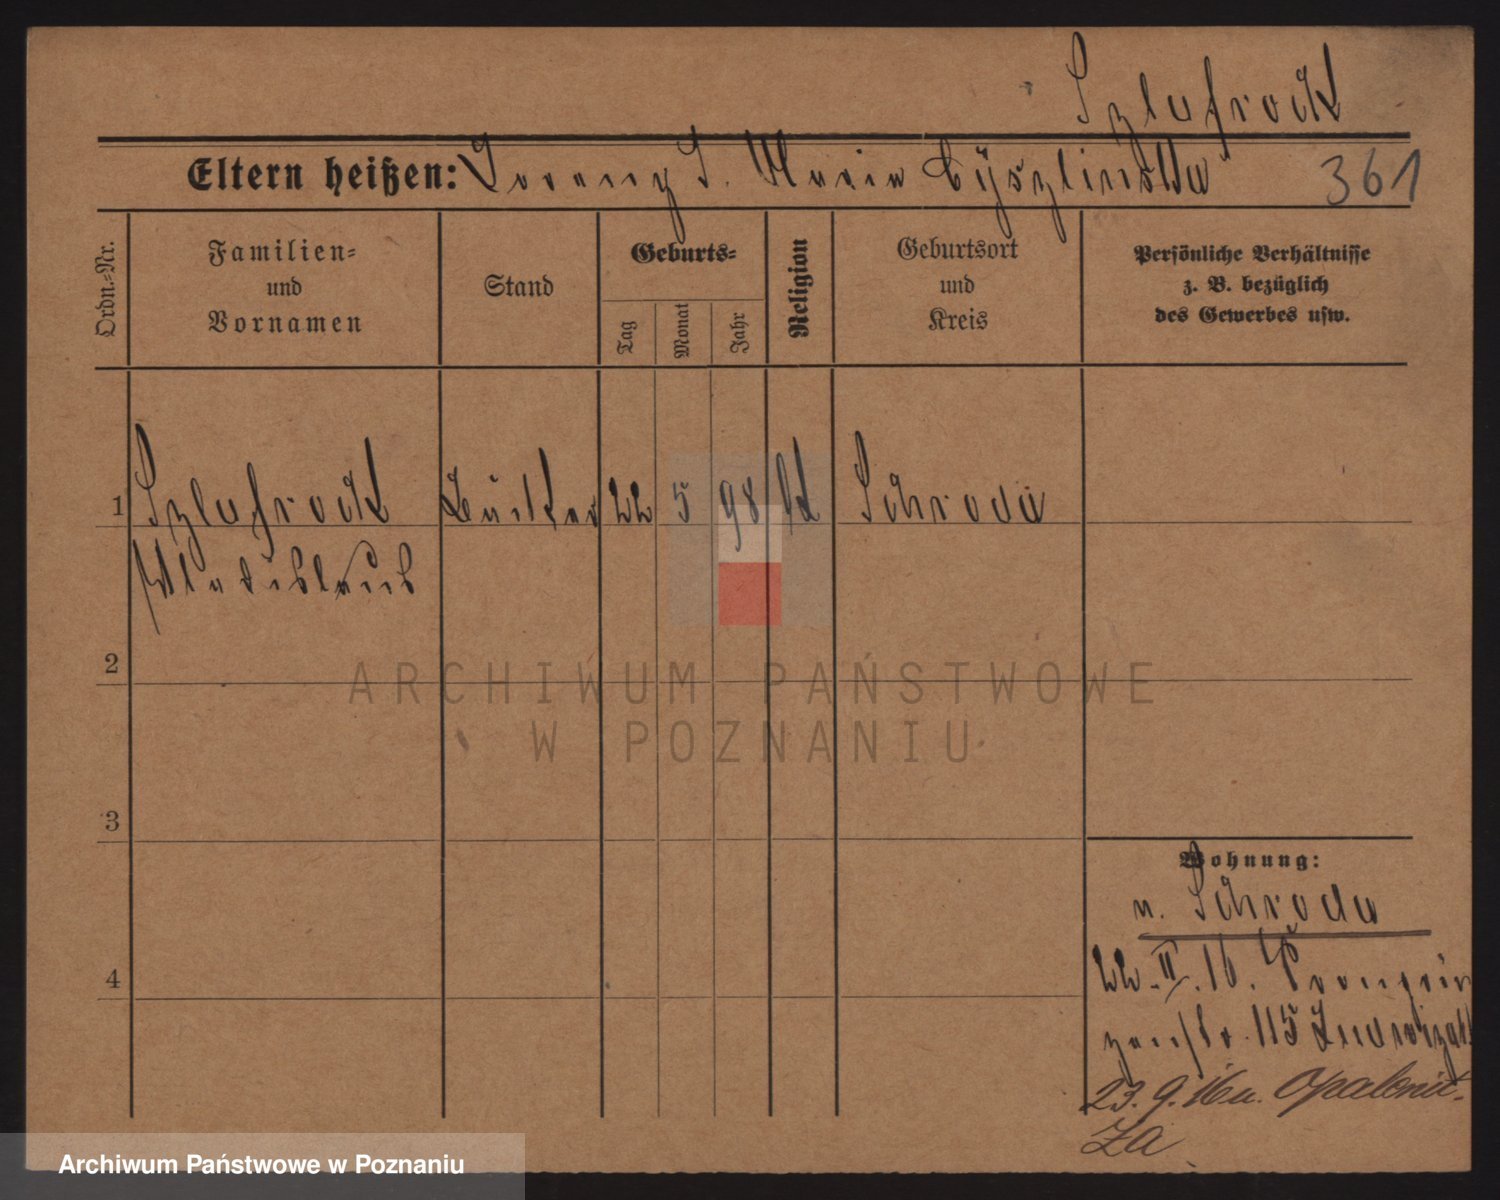 Szlafrock
Eltern heißen: Lorenz S. Maria
361
Ordn.-Nr.
Familien-
und
Vornamen
Stand
Geburts-
Tag
Monat
Jahr
Religion
Geburtsort
und
Kreis
Persönliche Verhältnisse
z. B. bezüglich
des Gewerbes usw.
1 Szlafrock Bäcker 22 5 98 kl Schroda
Wladislaus
2
3
4
Wohnung:
n. Schroda
22. II. 16. Kronprin
zenstr. 115
23. 9. 16 n. Opalenit-
za
ARCHIWUM PAŃSTWOWE
W POZNANIU
Archiwum Państwowe w Poznaniu